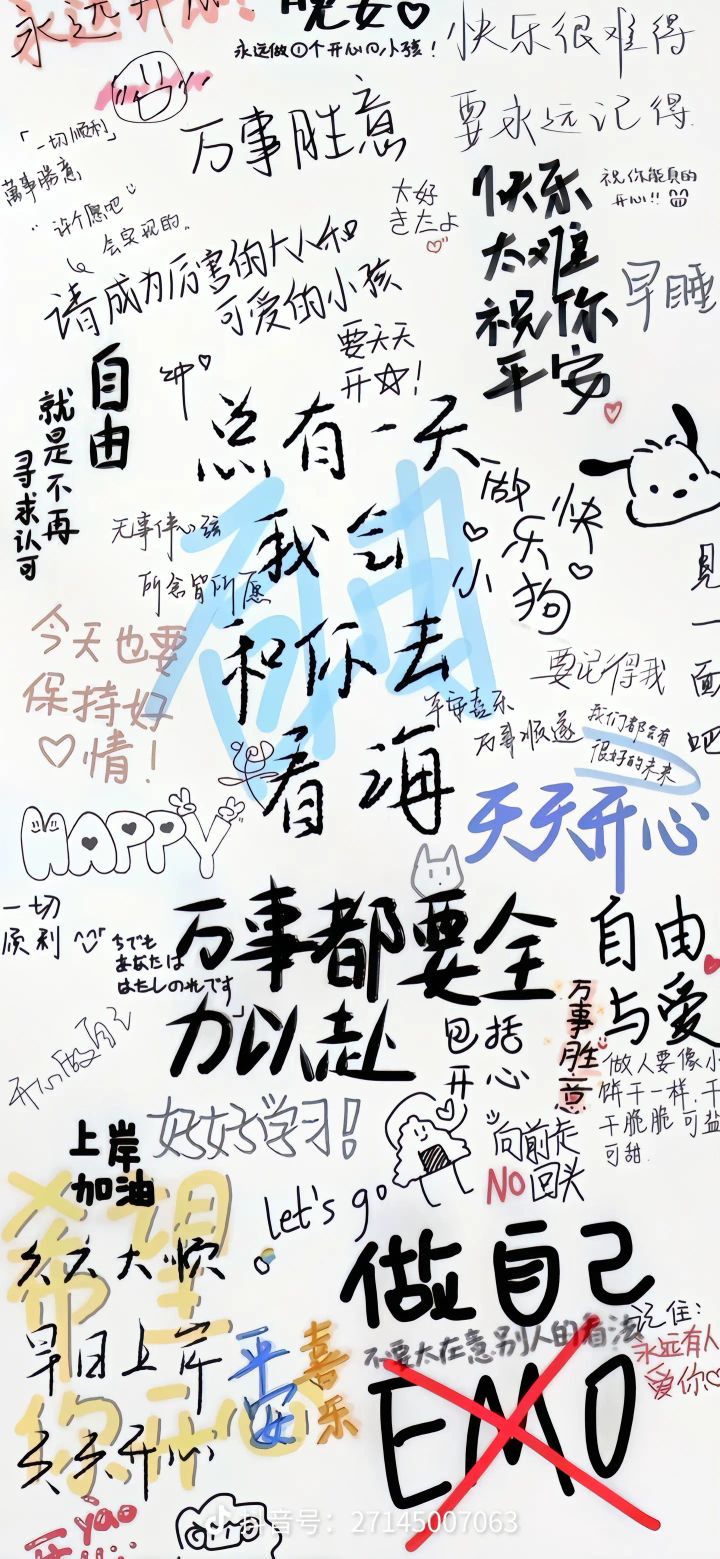 永远开心!
晚安
永远做1个开心の小孩!
快乐很难得
要永远记得
「一切顺利」
萬事勝意
万事胜意
许个愿吧
会实现的。
大好
きたよ
快乐
太难
祝你
平安
祝你能真的
开心!!
早睡
请成为厉害的大人和
可爱的小孩
要天天
开☆!
自由
就是不再
寻求认可
总有一天
我会
和你去
看海
自由
做快
乐
小狗
无事伴心弦
所念皆所愿
见一面吧
今天也要
保持好
情!
要记得我
平安喜乐
万事顺遂
我们都会有
很好的未来
HAPPY
天天开心
一切
顺利
ちでも
あなたは
はたしのれです
万事都要全
力以赴
包括
开心
自由
与爱
万事胜意
做人要像小
饼干一样,干
干脆脆 可盐
可甜.
开心做自己
好好学习!
上岸
加油
向前走
NO回头
let's go
希望
你开心
久久大顺。
早日上岸
天天开心
平安
喜乐
做自己
不要太在意别人的看法
记住:
永远有人
爱你
EMO
yao
抖音号: 27145007063